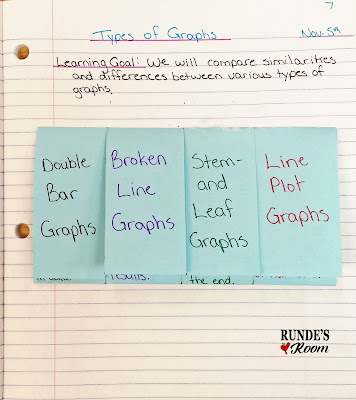 7
Types of Graphs
Nov. 5th
Learning Goal: We will compare similarities
and differences between various types of
graphs.
Double
Bar
Graphs
Broken
Line
Graphs
Stem-
and
Leaf
Graphs
Line
Plot
Graphs
the end.
RUNDE'S
Room